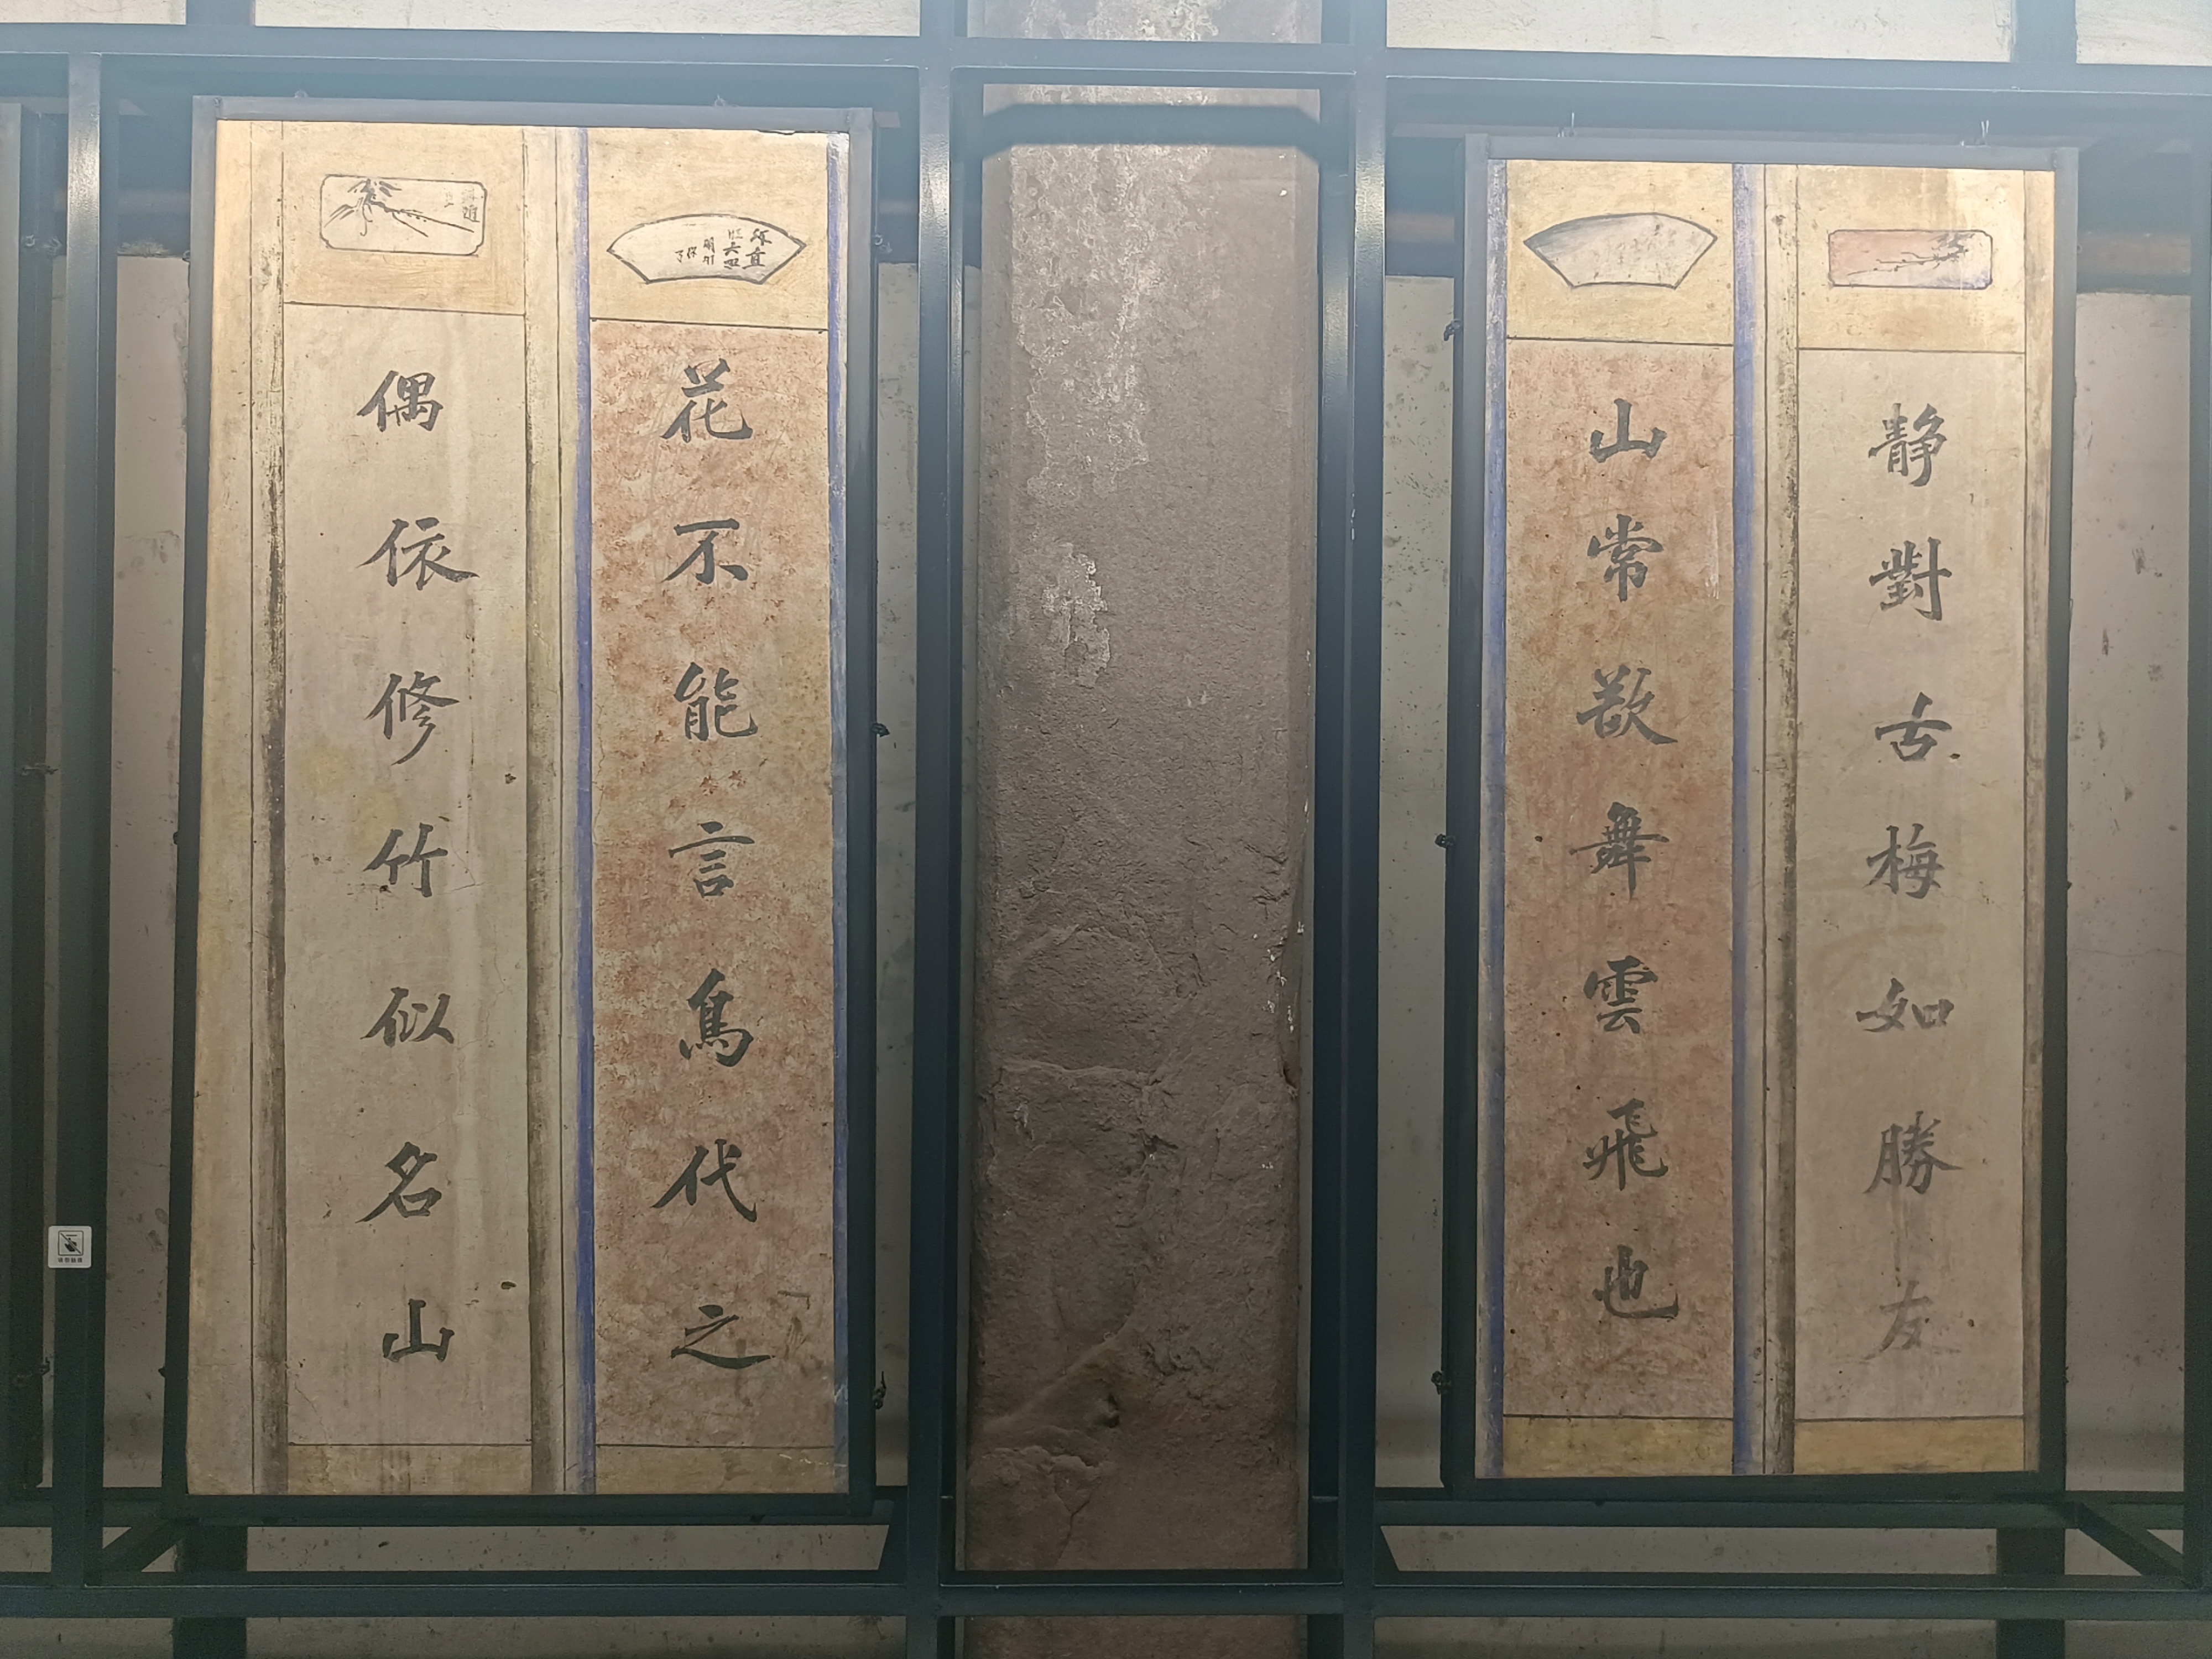 静對古梅如勝友
山常欲舞雲飛也
花不能言鳥代之
偶依修竹似名山